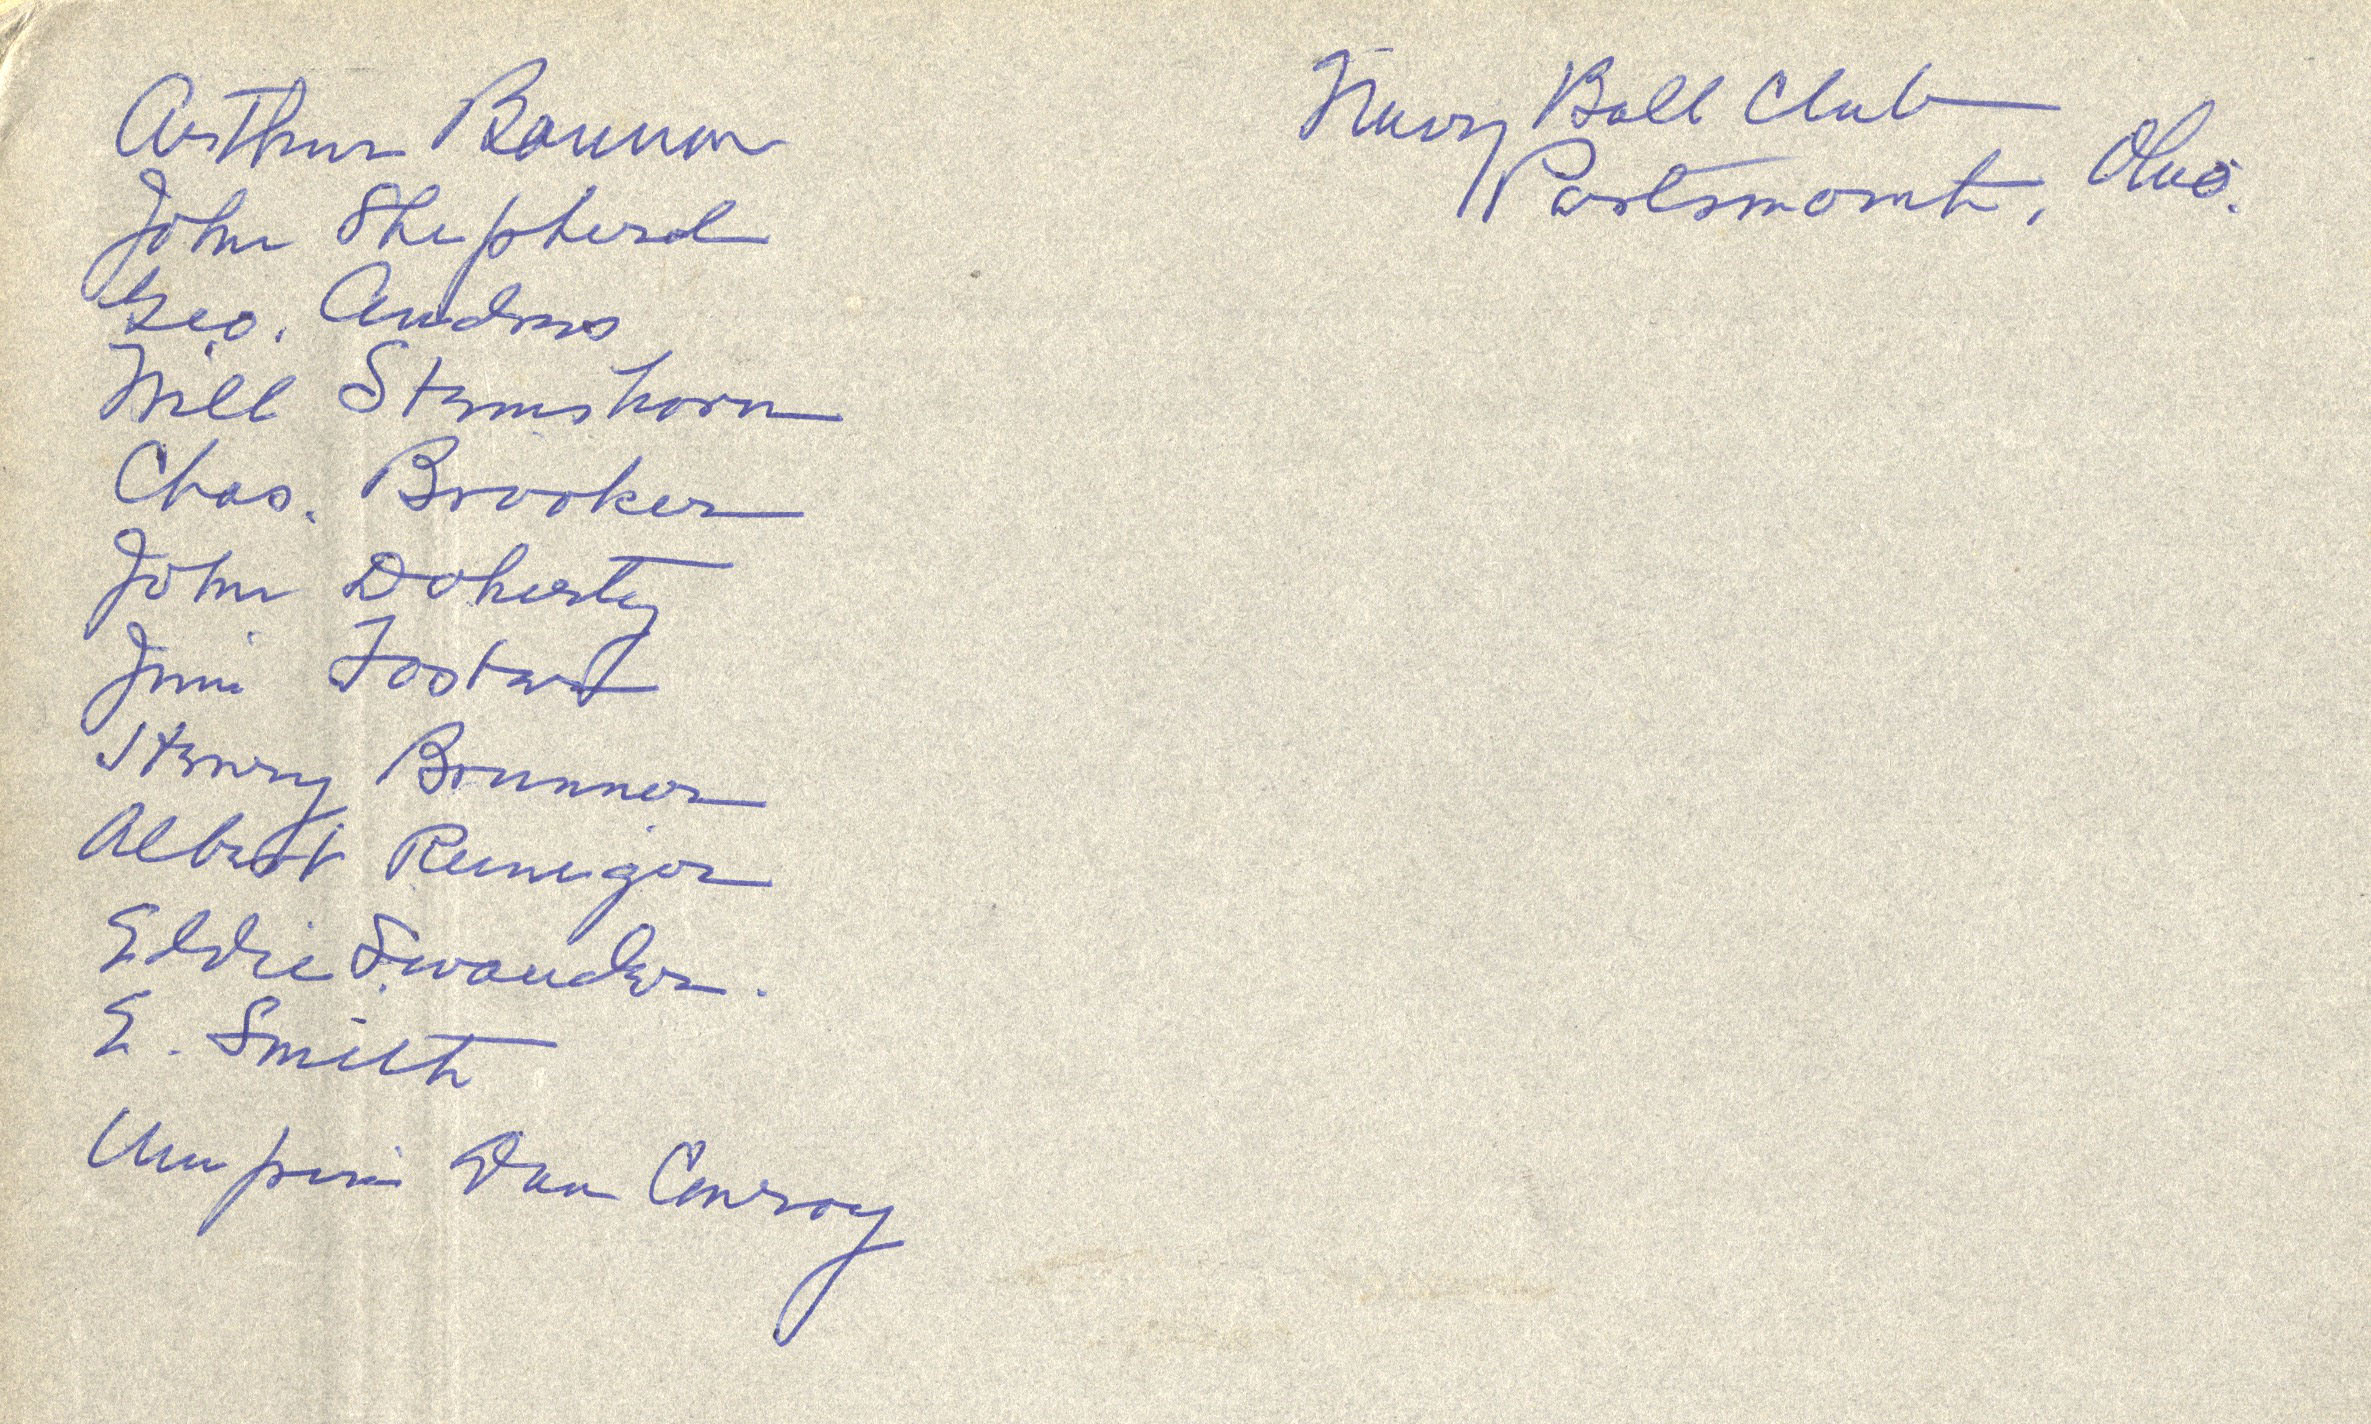 Arthur Bannon
John Shepherd
Geo. Andros
Will Stemshorn
Chas. Brooker
John Doherty
Jim Foster
Henry Brunner
Albert Reiniger
Eddie Swander.
E. Smith
Umpire Dan Conroy
Navy Ball Club
Portsmouth, Ohio.